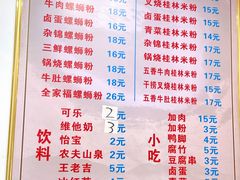 叉烧桂林米粉 17元
牛肉螺蛳粉 18元
卤蛋桂林米粉 15元
卤蛋螺蛳粉 16元
青菜桂林米粉 15元
杂锦螺蛳粉 18元
杂锦桂林米粉 17元
三鲜螺蛳粉 18元
锅烧桂林米粉 17元
锅烧螺蛳粉 18元
五香牛肉桂林米粉 17元
牛肚螺蛳粉 18元
干捞叉烧桂林米粉 17元
全家福螺蛳粉 26元
五香牛肚桂林米粉 17元
饮料
可乐 2元
维他奶 3元
怡宝 2元
农夫山泉
王老吉
小吃
加肉 15元
加粉 3元
鸭脚 4元
腐竹 5元
豆腐串
卤蛋